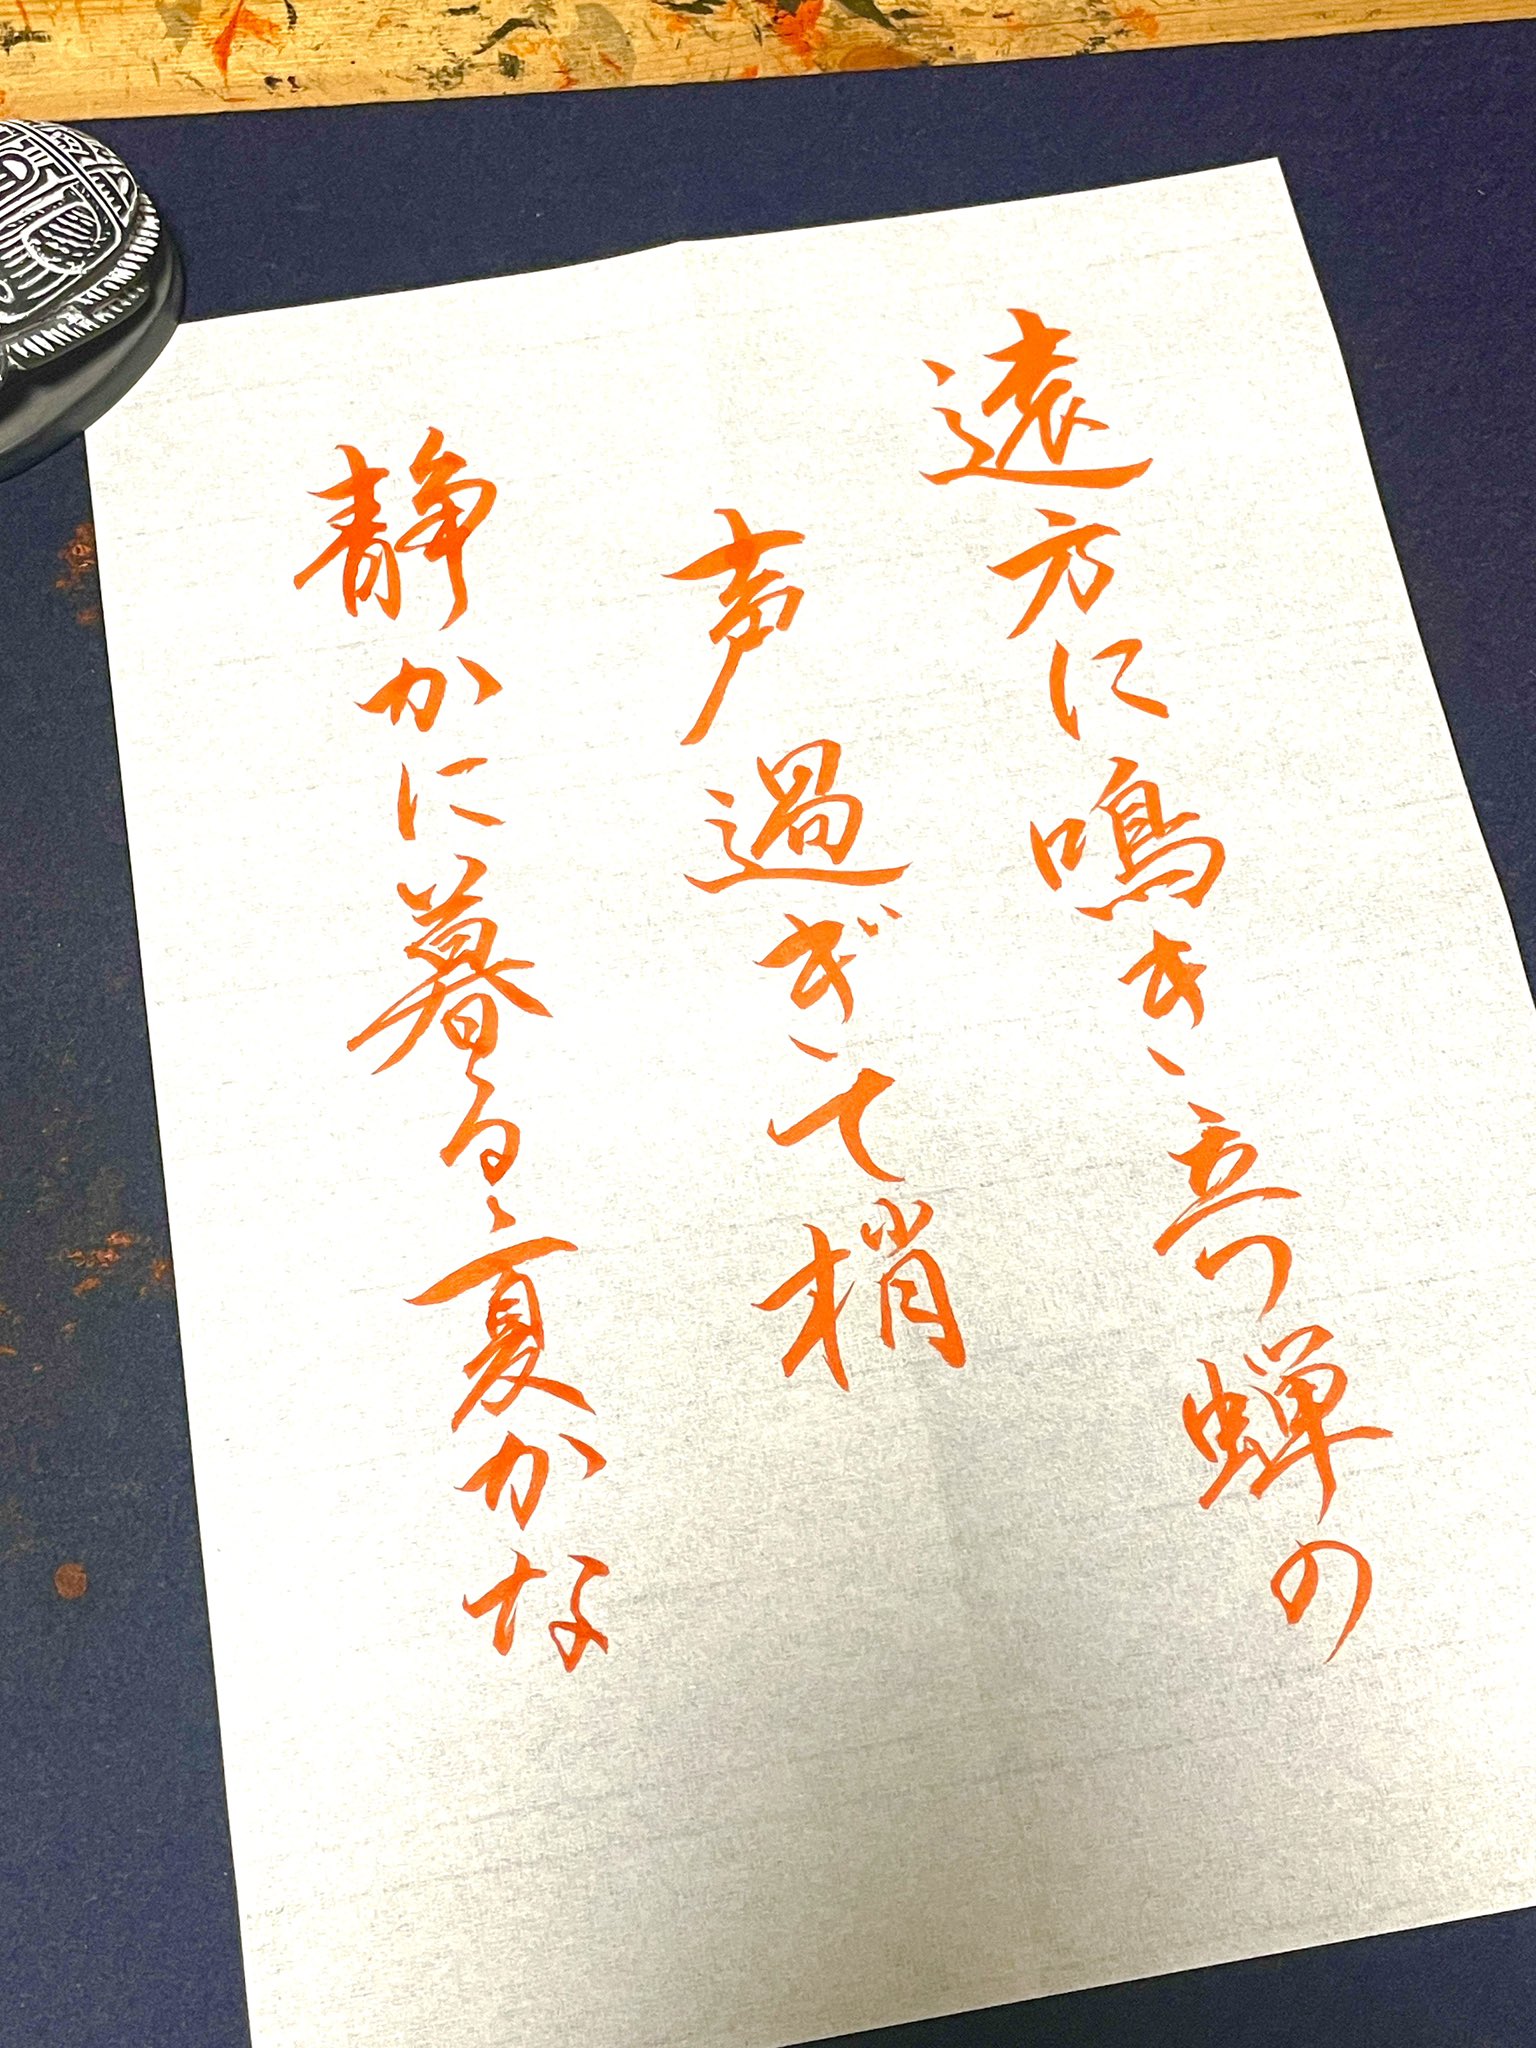 遠方に鳴き立つ蝉の
声過ぎて梢
静かに暮る夏かな